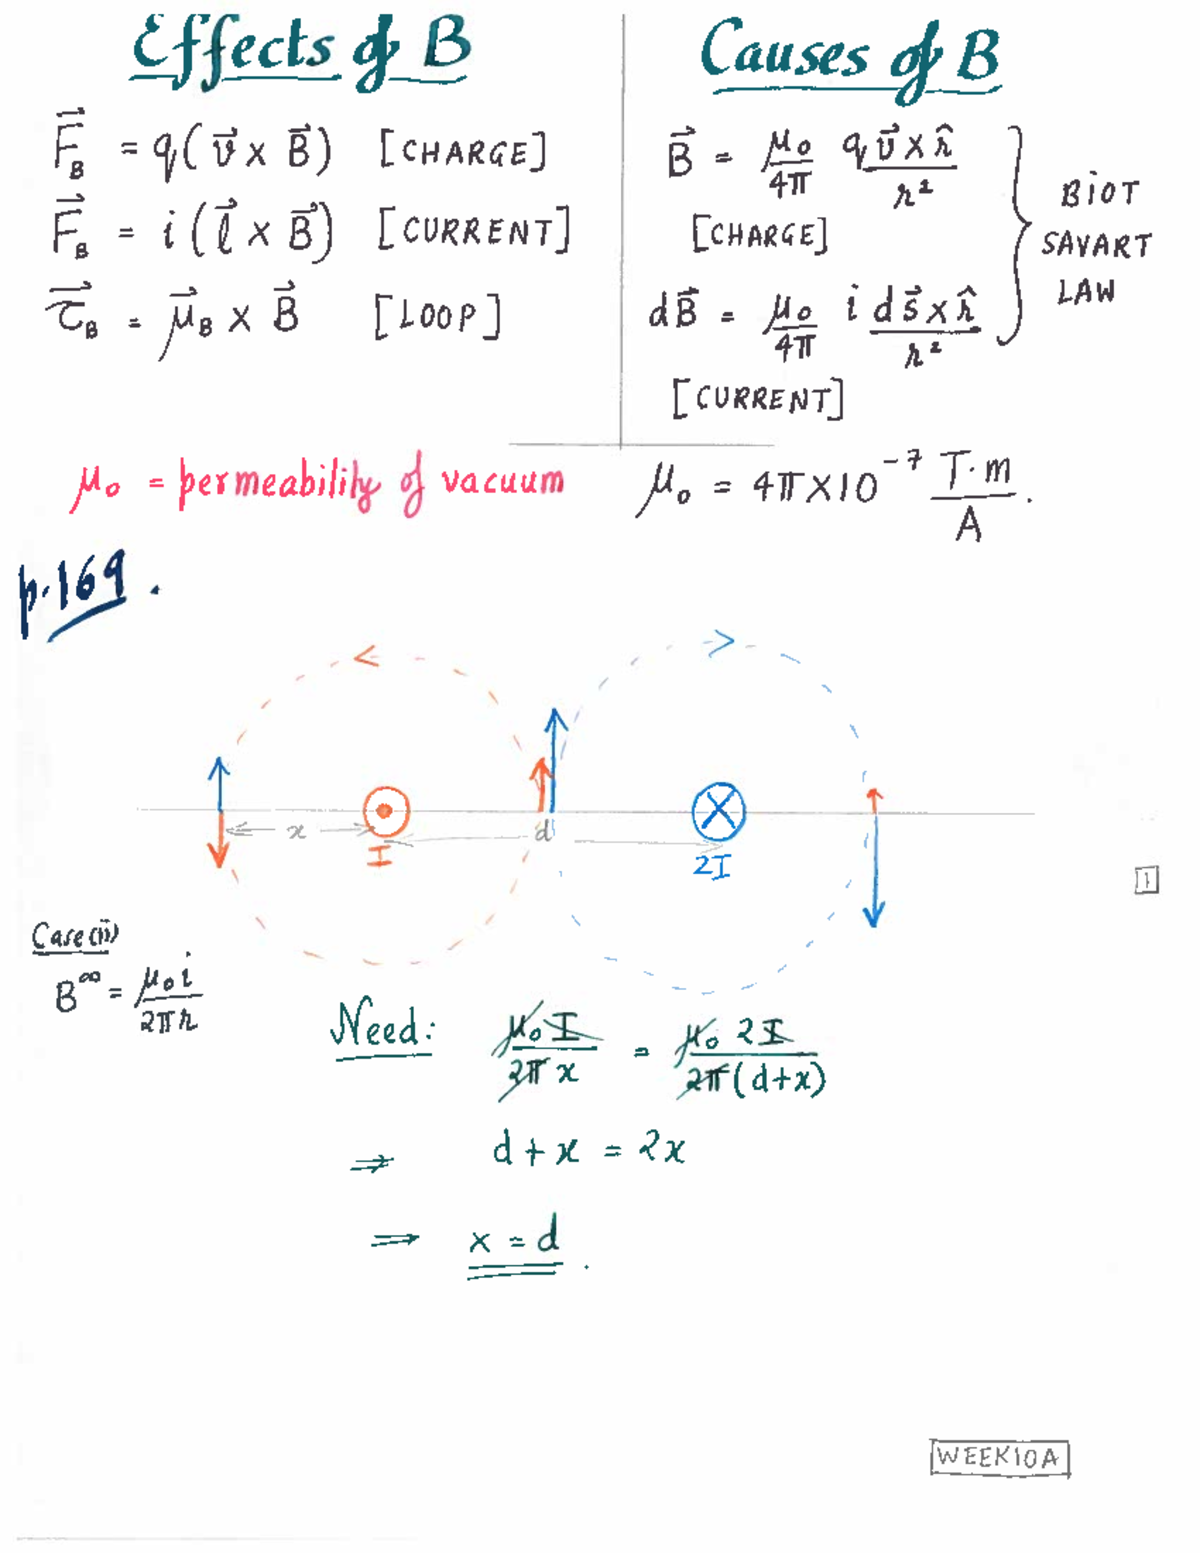 Effects of B
\vec{F}_B = q(\vec{v} × \vec{B}) [CHARGE]
\vec{F}_B = i(\vec{l} × \vec{B}) [CURRENT]
\vec{τ}_B = \vec{μ}_B × \vec{B} [LOOP]
Causes of B
\vec{B} = \frac{μ₀}{4π} \frac{q\vec{v} × \hat{r}}{r²}
[CHARGE]
d\vec{B} = \frac{μ₀}{4π} \frac{i d\vec{s} × \hat{r}}{r²}
[CURRENT]
BIOT
SAVART
LAW
μ₀ = permeability of vacuum
μ₀ = 4π×10⁻⁷ \frac{T·m}{A}.
p.169.
x
d
I
2I
1
Case(ii)
B^∞ = \frac{μ₀i}{2πr}
Need: \frac{μ₀I}{2πx} = \frac{μ₀2I}{2π(d+x)}
⇒ d+x = 2x
⇒ x = d.
WEEK10A